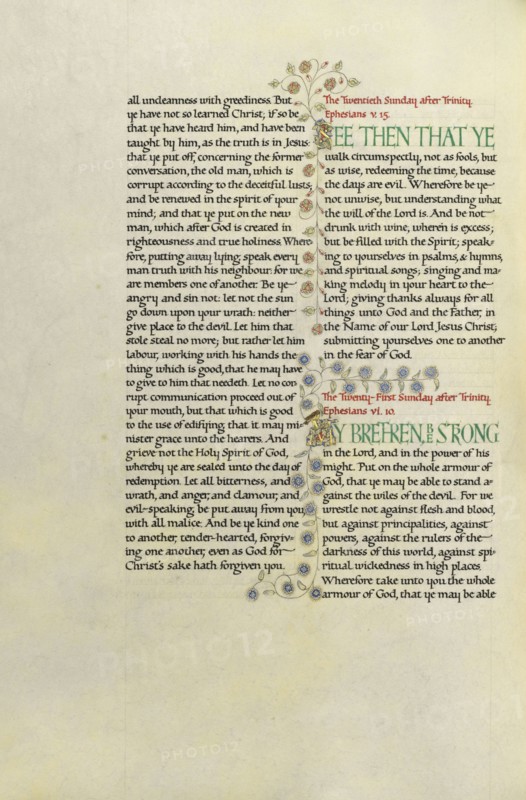 all uncleanness with greediness. But
ye have not so learned Christ; if so be
that ye have heard him, and have been
taught by him, as the truth is in Jesus:
that ye put off, concerning the former
conversation, the old man, which is
corrupt according to the deceitful lusts;
and be renewed in the spirit of your
mind; and that ye put on the new
man, which after God is created in
righteousness and true holiness. Where-
fore, putting away lying; speak every
man truth with his neighbour: for we
are members one of another. Be ye
angry and sin not: let not the sun
go down upon your wrath: neither
give place to the devil. Let him that
stole steal no more; but rather let him
labour, working with his hands the
thing which is good, that he may have
to give to him that needeth. Let no cor
rupt communication proceed out of
your mouth, but that which is good
to the use of edifying that it may mi-
nister grace unto the hearers. And
grieve not the Holy Spirit of God,
whereby ye are sealed unto the day of
redemption. Let all bitterness, and
wrath, and anger, and clamour, and
evil-speaking, be put away from you,
with all malice. And be ye kind one
to another, tender-hearted, forgiv-
ing one another, even as God for
Christ's sake hath forgiven you.
The Twentieth Sunday after Trinity.
Ephesians v. 15.
SEE THEN THAT YE
walk circumspectly, not as fools, but
as wise, redeeming the time, because
the days are evil. Wherefore be ye
not unwise, but understanding what
the will of the Lord is. And be not
drunk with wine, wherein is excess;
but be filled with the Spirit; speak-
ing to yourselves in psalms, & hymns,
and spiritual songs; singing and ma-
king melody in your heart to the
Lord; giving thanks always for all
things unto God and the Father, in
the Name of our Lord Jesus Christ;
submitting yourselves one to another
in the fear of God.
The Twenty-First Sunday after Trinity.
Ephesians vi. 10.
MY BRETREN, BE STRONG
in the Lord, and in the power of his
might. Put on the whole armour of
God, that ye may be able to stand a-
gainst the wiles of the devil. For we
wrestle not against flesh and blood,
but against principalities, against
powers, against the rulers of the
darkness of this world, against spi-
ritual wickedness in high places.
Wherefore take unto you the whole
armour of God, that ye may be able
PHOTO12